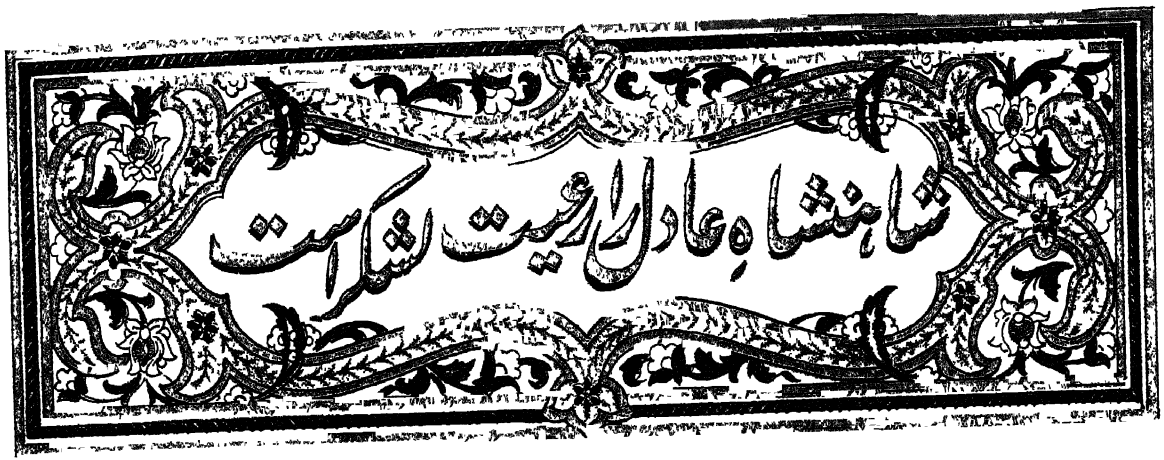 شاہنشاہِ عادل را رعیت لشکر است